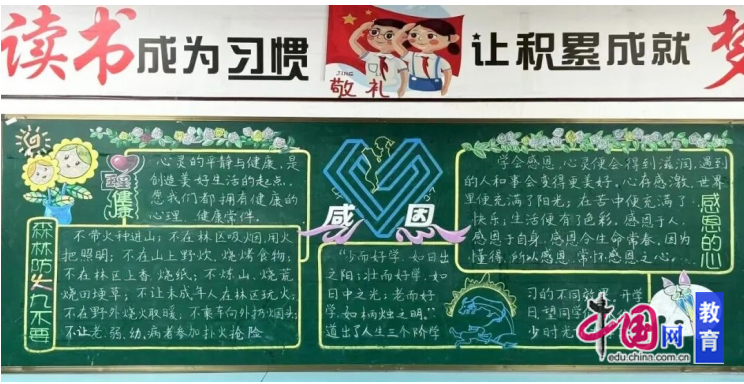 读书成为习惯
JING
敬礼
让积累成就梦
健康
心灵的平静与健康,是
创造美好生活的起点,
愿我们都拥有健康的
心理,健康常伴。
森林防火九不要
不带火种进山;不在林区吸烟,用火
把照明;不在山上野炊,烧烤食物;
不在林区上香,烧纸;不炼山,烧荒
烧田埂草;不让未成年人在林区玩火;
不在野外烧火取暖;不乘车向外扔烟头;
不让老、弱、幼、病者参加扑火抢险
感因
"少而好学,如日出
之阳;壮而好学,如
日中之光;老而好
学,如柄烛之明。"
道出了人生三个阶学
习的不同效果,开学
日望同学们
少时光
学会感恩,心灵便会得到滋润,遇到
的人和事会变得更美好。心存感激,世界
里便充满了阳光;在苦中便充满了
快乐;生活便有了色彩。感恩于人,
感恩于自身,感恩会生命常春,因为
懂得,所以感恩,常怀感恩之心。
感恩的心
中国网
edu.china.com.cn
教育